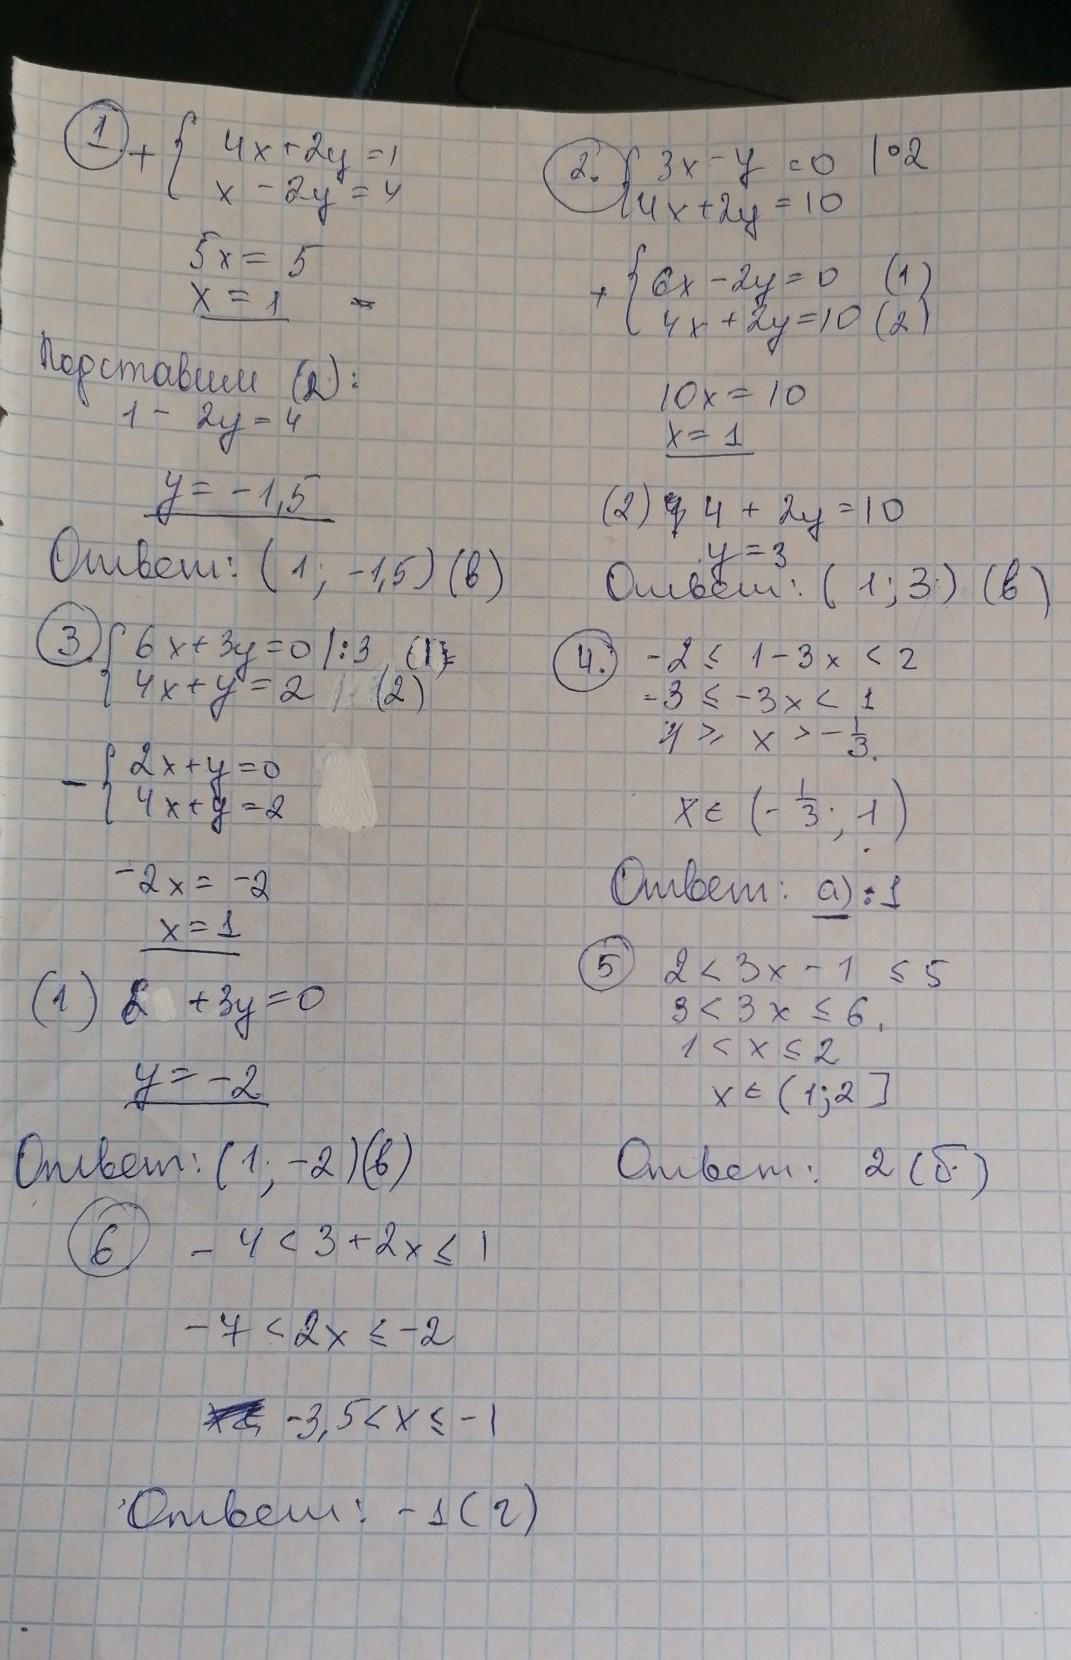 1 + { 4x+2y=1
x-2y=4
5x=5
x=1
Подставим (2):
1-2y=4
y=-1,5
Ответ: (1; -1,5) (в)
2. { 3x-y=0 |·2
4x+2y=10
+ { 6x-2y=0 (1)
4x+2y=10 (2)
10x=10
x=1
(2) 4+2y=10
y=3
Ответ: (1;3) (в)
3. { 6x+3y=0 |:3 (1)
4x+y=2 (2)
- { 2x+y=0
4x+y=2
-2x=-2
x=1
(1) 6 +3y=0
y=-2
Ответ: (1; -2) (в)
4. -2≤1-3x<2
-3≤-3x<1
1≥x>-1/3
x∈(-1/3; 1)
Ответ: а) :1
5 2<3x-1≤5
3<3x≤6
1<x≤2
x∈(1;2]
Ответ: 2 (б)
6 -4<3+2x≤1
-7<2x≤-2
-3,5<x≤-1
Ответ: -1 (г)